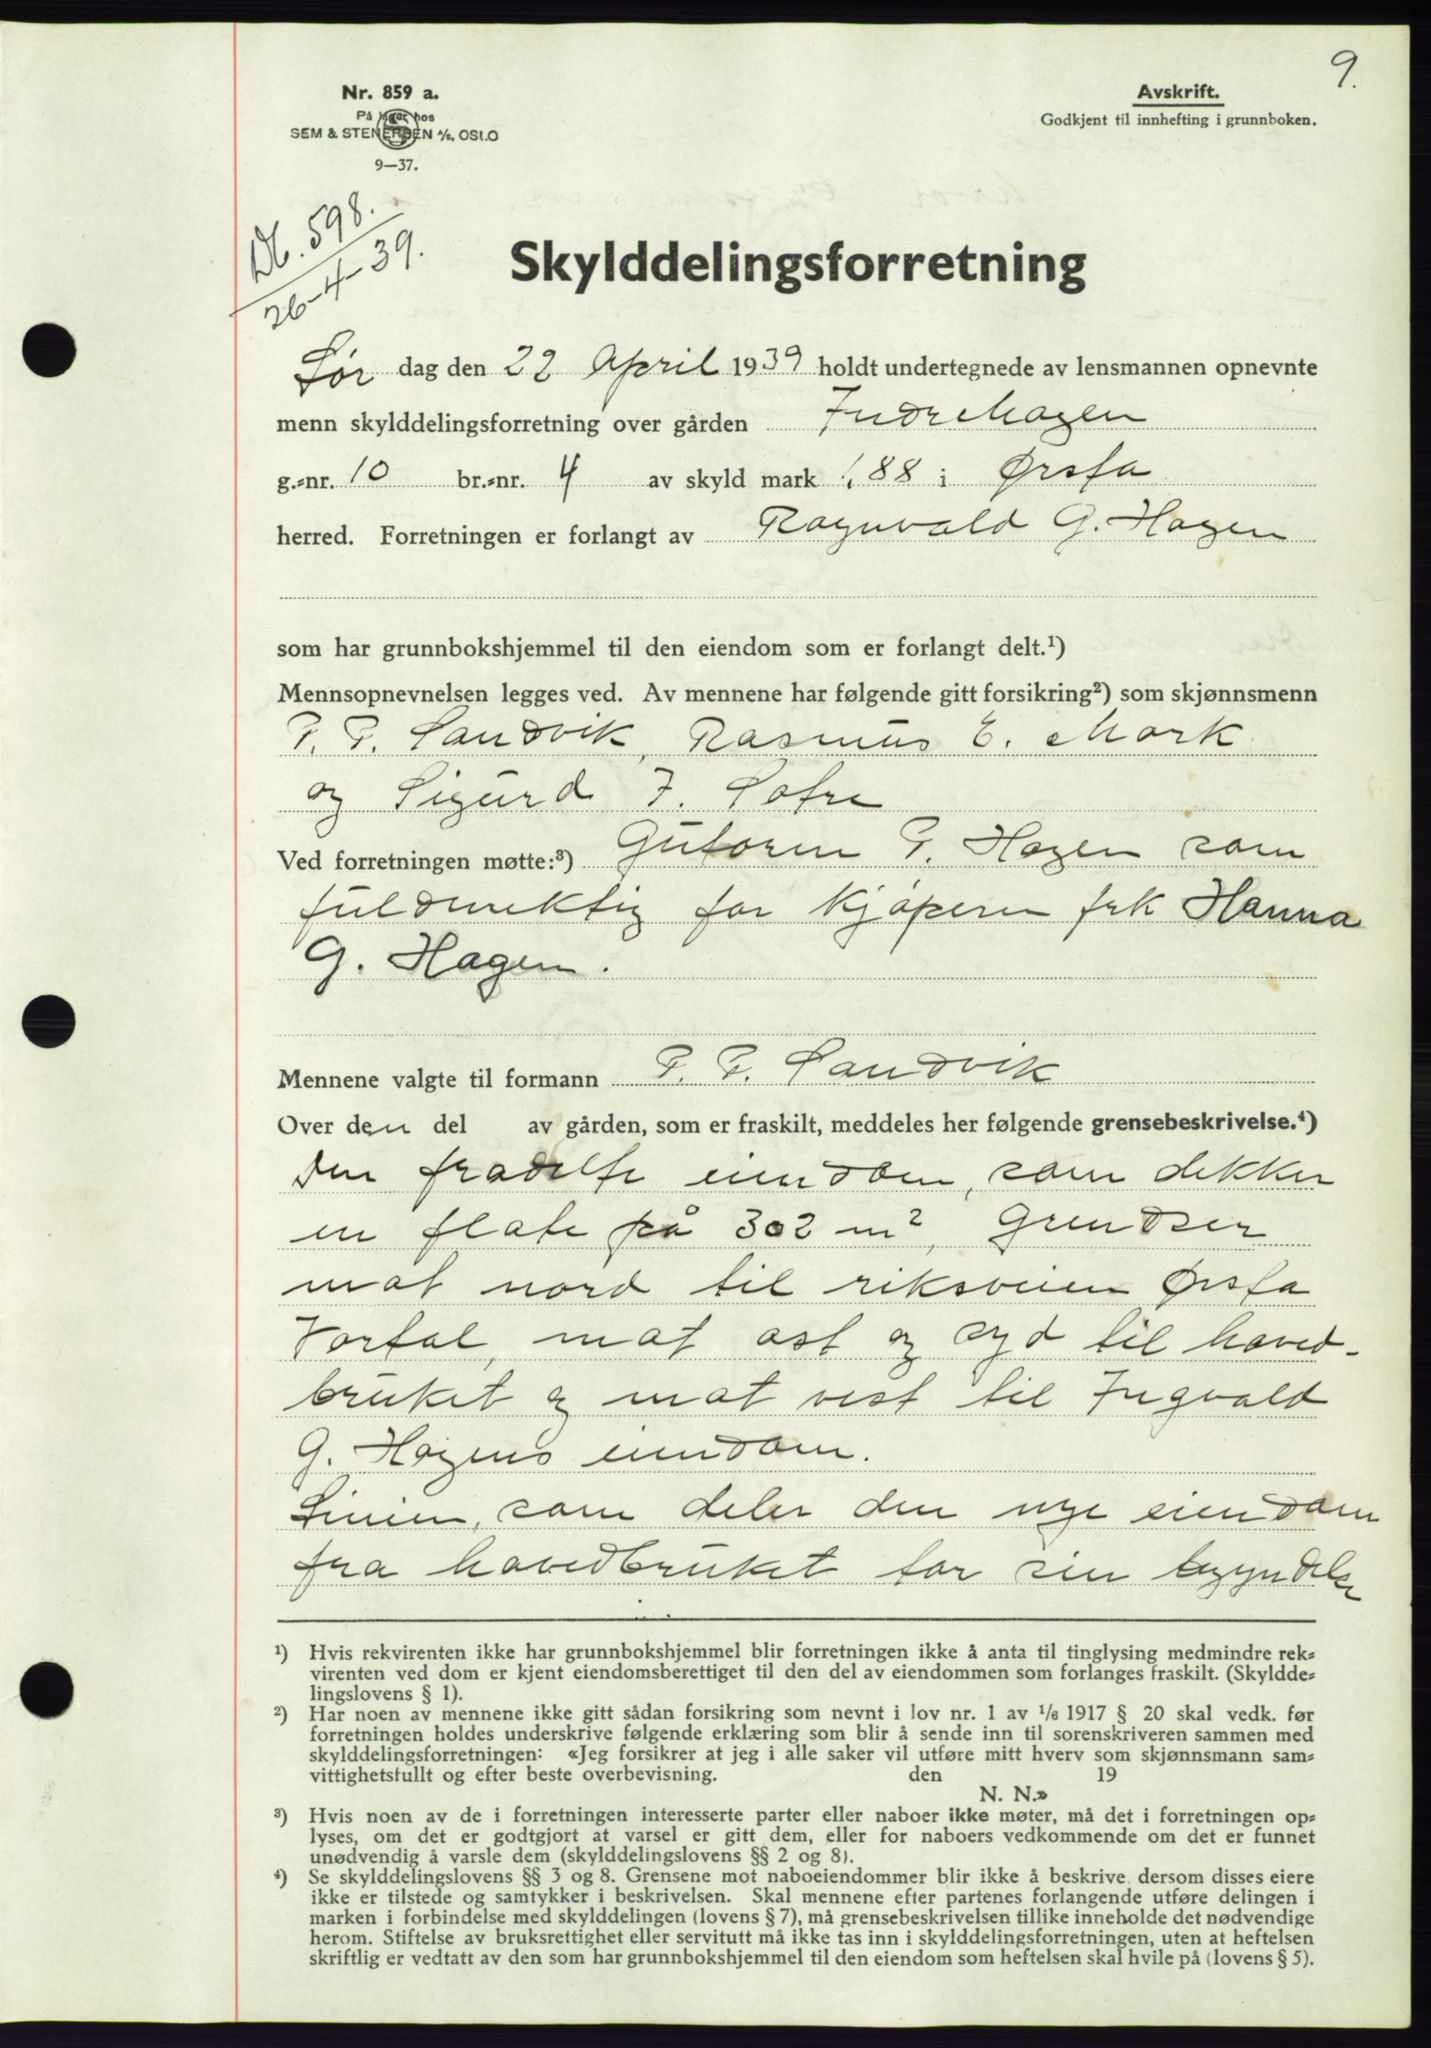 9.
Nr. 859 a.
På lager hos
SEM & STENERSEN A/S, OSLO
9—37.
Avskrift.
Godkjent til innhefting i grunnboken.
Db. 598.
26-4-39.
Skylddelingsforretning
Lør dag den 22 April 1939 holdt undertegnede av lensmannen opnevnte
menn skylddelingsforretning over gården Indrehagen
g.-nr. 10 br.-nr. 4 av skyld mark 1,88 i Ørsta
herred. Forretningen er forlangt av Ragnvald G. Hagen
som har grunnbokshjemmel til den eiendom som er forlangt delt.¹)
Mennsopnevnelsen legges ved. Av mennene har følgende gitt forsikring²) som skjønnsmenn
P. P. Sandvik, Rasmus E. Mork
og Sigurd J. Sætre
Ved forretningen møtte:³) Gutorm P. Hagen som
fuldmektig for kjøperen frk Hanna
G. Hagen.
Mennene valgte til formann P. P. Sandvik
Over den del av gården, som er fraskilt, meddeles her følgende grensebeskrivelse.⁴)
Den fradelte eiendom, som dekker
en flate på 302 m², Grendser
mot nord til riksveien Ørsta
Vartal, mot ost og syd til hoved-
bruket og mot vest til Ingvald
G. Hagens eiendom.
Linien, som deler den nye eiendom
fra hovedbruket tar sin begyndelse
¹) Hvis rekvirenten ikke har grunnbokshjemmel blir forretningen ikke å anta til tinglysing medmindre rek-
virenten ved dom er kjent eiendomsberettiget til den del av eiendommen som forlanges fraskilt. (Skyldde-
lingslovens § 1).
²) Har noen av mennene ikke gitt sådan forsikring som nevnt i lov nr. 1 av 1/6 1917 § 20 skal vedk. før
forretningen holdes underskrive følgende erklæring som blir å sende inn til sorenskriveren sammen med
skylddelingsforretningen: «Jeg forsikrer at jeg i alle saker vil utføre mitt hverv som skjønnsmann sam-
vittighetsfullt og efter beste overbevisning. den 19
N. N.»
³) Hvis noen av de i forretningen interesserte parter eller naboer ikke møter, må det i forretningen op-
lyses, om det er godtgjort at varsel er gitt dem, eller for naboers vedkommende om det er funnet
unødvendig å varsle dem (skylddelingslovens §§ 2 og 8).
⁴) Se skylddelingslovens §§ 3 og 8. Grensene mot naboeiendommer blir ikke å beskrive dersom disses eiere
ikke er tilstede og samtykker i beskrivelsen. Skal mennene efter partenes forlangende utføre delingen i
marken i forbindelse med skylddelingen (lovens § 7), må grensebeskrivelsen tillike inneholde det nødvendige
herom. Stiftelse av bruksrettighet eller servitutt må ikke tas inn i skylddelingsforretningen, uten at heftelsen
skriftlig er vedtatt av den som har grunnbokshjemmel til den eiendom som heftelsen skal hvile på (lovens § 5).